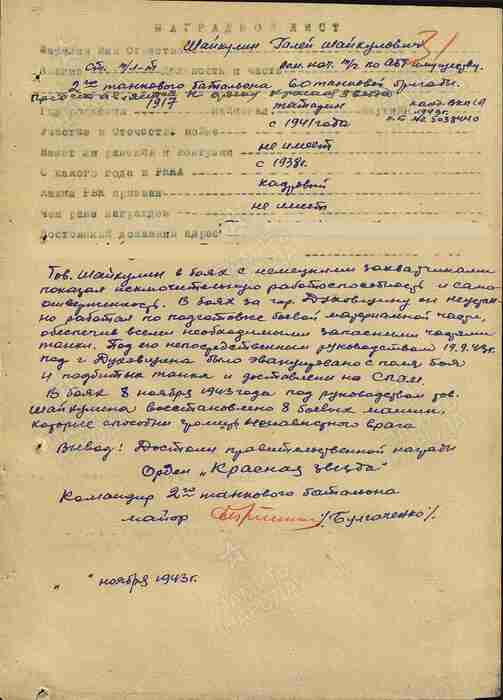 НАГРАДНОЙ ЛИСТ
Фамилия Имя Отчество Шайкулин Галей Шайкулович
Звание Ст. т/л-т должность и часть пом. нач. т/ч по АБТ имуществу
2го танкового баталиона танковой бригады.
Представляется к ордену Красная звезда
Год рождения 1917 национал. татарин партийн. канд. ВКП(б)
Участие в Отечеств. войне с 1941 года
Имеет ли ранения и контузии не имеет
С какого года в РККА с 1938г.
Каким РВК призван кадровый
Чем ранее награжден не имеет
Постоянный домашний адрес
Тов. Шайкулин в боях с немецкими захватчиками
показал исключительную работоспособность и само-
отверженность. В боях за гор. Духовщину он неустан-
но работал по подготовке боевой материальной части,
обеспечив всеми необходимыми запасными частями
танки. Под его непосредственным руководством 19.9.43г.
под г. Духовщина было эвакуировано с поля боя
и подбитых танка и доставлены на Спам.
В боях 8 ноября 1943 года под руководством тов.
Шайкулина восстановлено 8 боевых машин,
которые способны громить ненавистного врага
Вывод! Достоин правительственной награды
Орден „Красная звезда"
Командир 2го танкового баталиона
майор /Булгаченко/.
" " ноября 1943г.
ПАМЯТЬ НАРОДА